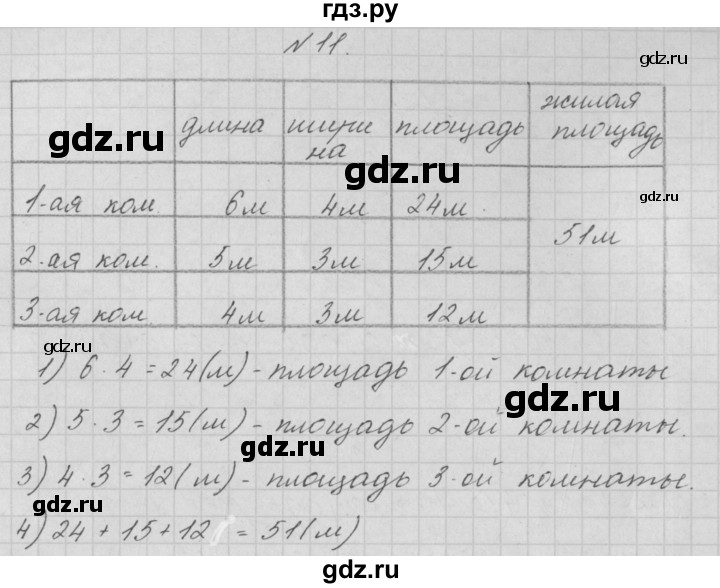 гдз.ру
№ 11.
gdz.ru
длина ширина площадь жилая площадь
gdz.ru
gdz.ru
gdz.ru
1-ая ком. 6м 4м 24м.
2-ая ком. 5м 3м 15м 51м
3-ая ком. 4м 3м 12м
gdz.ru
1) 6 · 4 = 24(м) - площадь 1-ой комнаты
gdz.ru
2) 5 · 3 = 15(м) - площадь 2-ой комнаты.
gdz.ru
3) 4 · 3 = 12(м) - площадь 3-ой комнаты.
gdz.ru
4) 24 + 15 + 12 = 51(м)
gdz.ru
gdz.ru